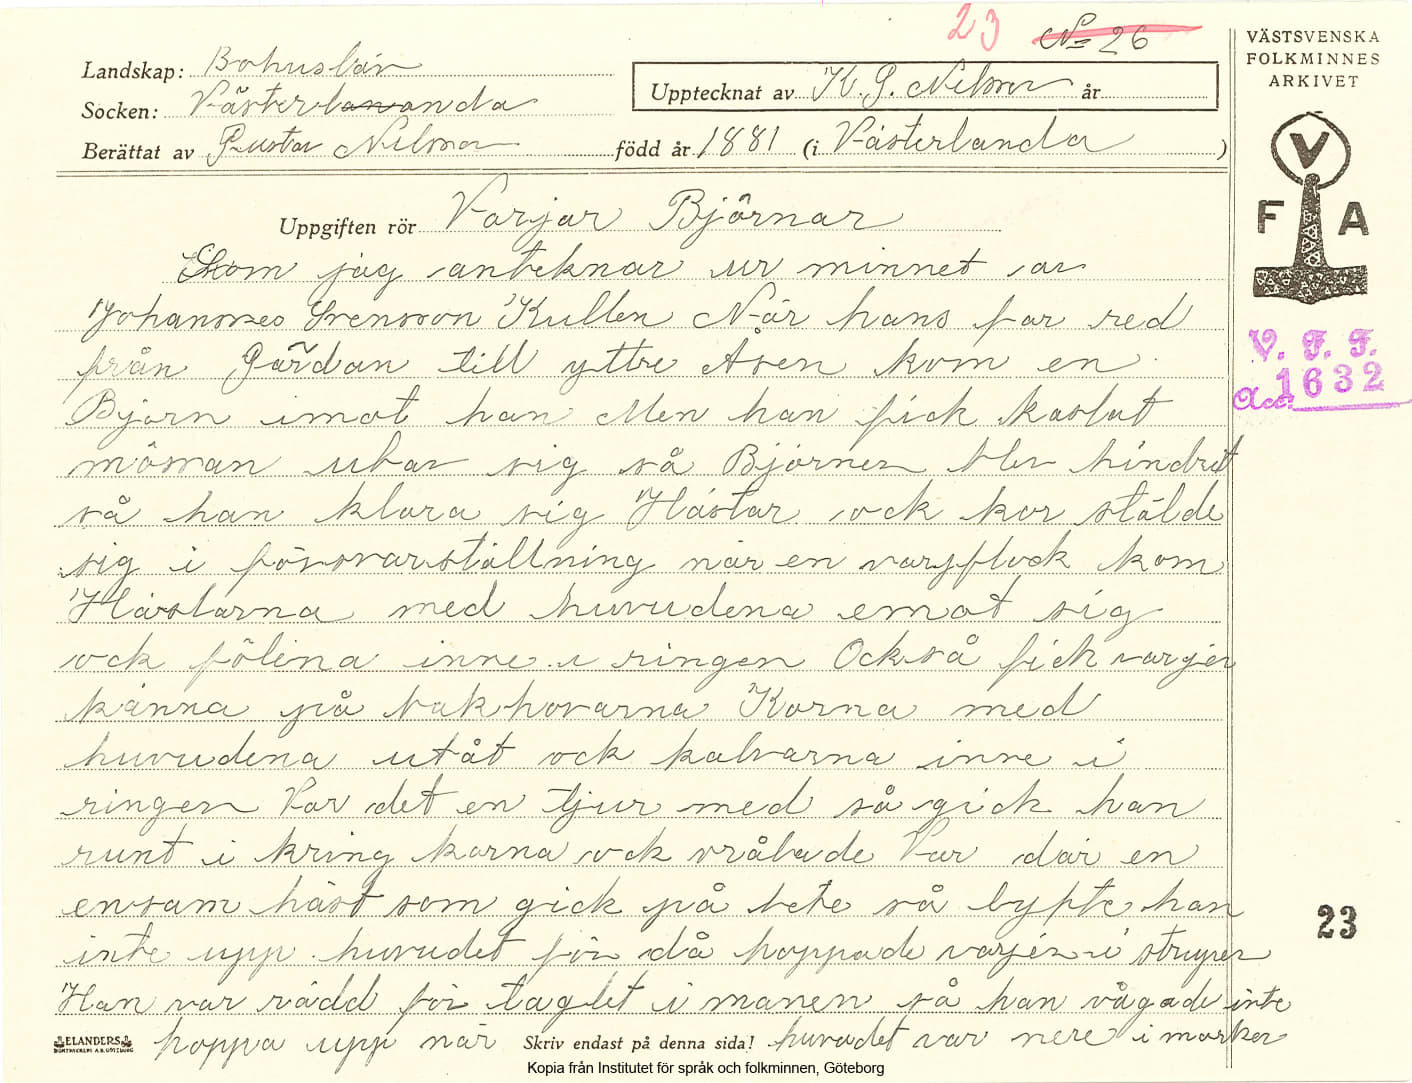 23 № 26
Landskap: Bohuslän
Socken: Västerlanda
Berättat av Gustav Nilsson född år 1881 (i Västerlanda)
Upptecknat av K. G. Nilsson år
VÄSTSVENSKA
FOLKMINNES
ARKIVET
V
F A
V. F. F.
Acc. 1632
Uppgiften rör Varjar Björnar
Som jag anteknar ur minnet av
Johannes Svensson Kullen När hans far red
från Gårdan till yttre Åsen kom en
Björn imot han Men han fick kastat
mössan utav sig så Björnen blev hindret
så han klara sig Hästar ock kor stälde
sig i försvarställning när en varjflock kom
Hästarna med huvudena emot sig
ock fölena inne i ringen Också fick varjen
känna på bakhovarna Korna med
huvudena utåt ock kalvarna inne i
ringen Var det en tjur med så gick han
runt i kring korna ock vrålade Var där en
ensam häst som gick på bete så lyfte han
inte upp huvudet för då hoppade varjen i strupen
Han var rädd för taglet i manen så han vågade inte
hoppa upp när huvudet var nere i marken
23
ELANDERS
BOKTRYCKERI A.B. GÖTEBORG
Skriv endast på denna sida!
Kopia från Institutet för språk och folkminnen, Göteborg